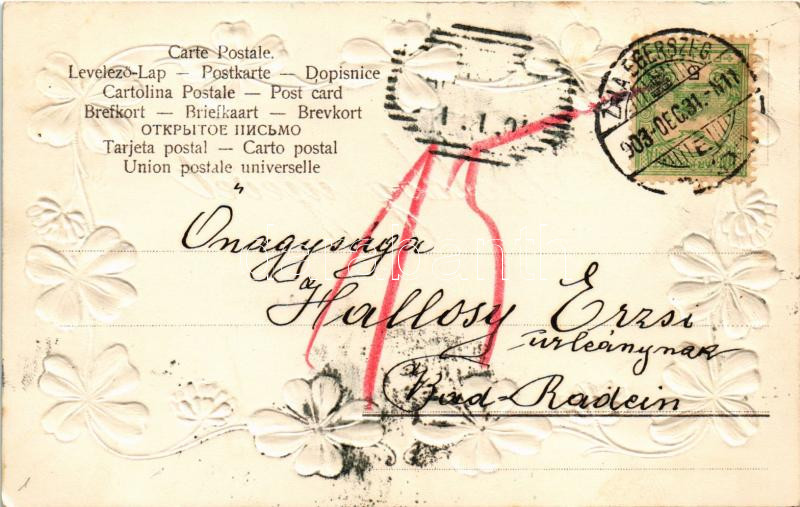 Carte Postale.
Levelező-Lap — Postkarte — Dopisnice
Cartolina Postale — Post card
Brefkort — Briefkaart — Brevkort
ОТКРЫТОЕ ПИСЬМО
Tarjeta postal — Carto postal
Union postale universelle
ZALAEGERSZEG
903 DEC. 31.
Önagysága
Hallosy Erzsi
urleánynak
Bad-Radein